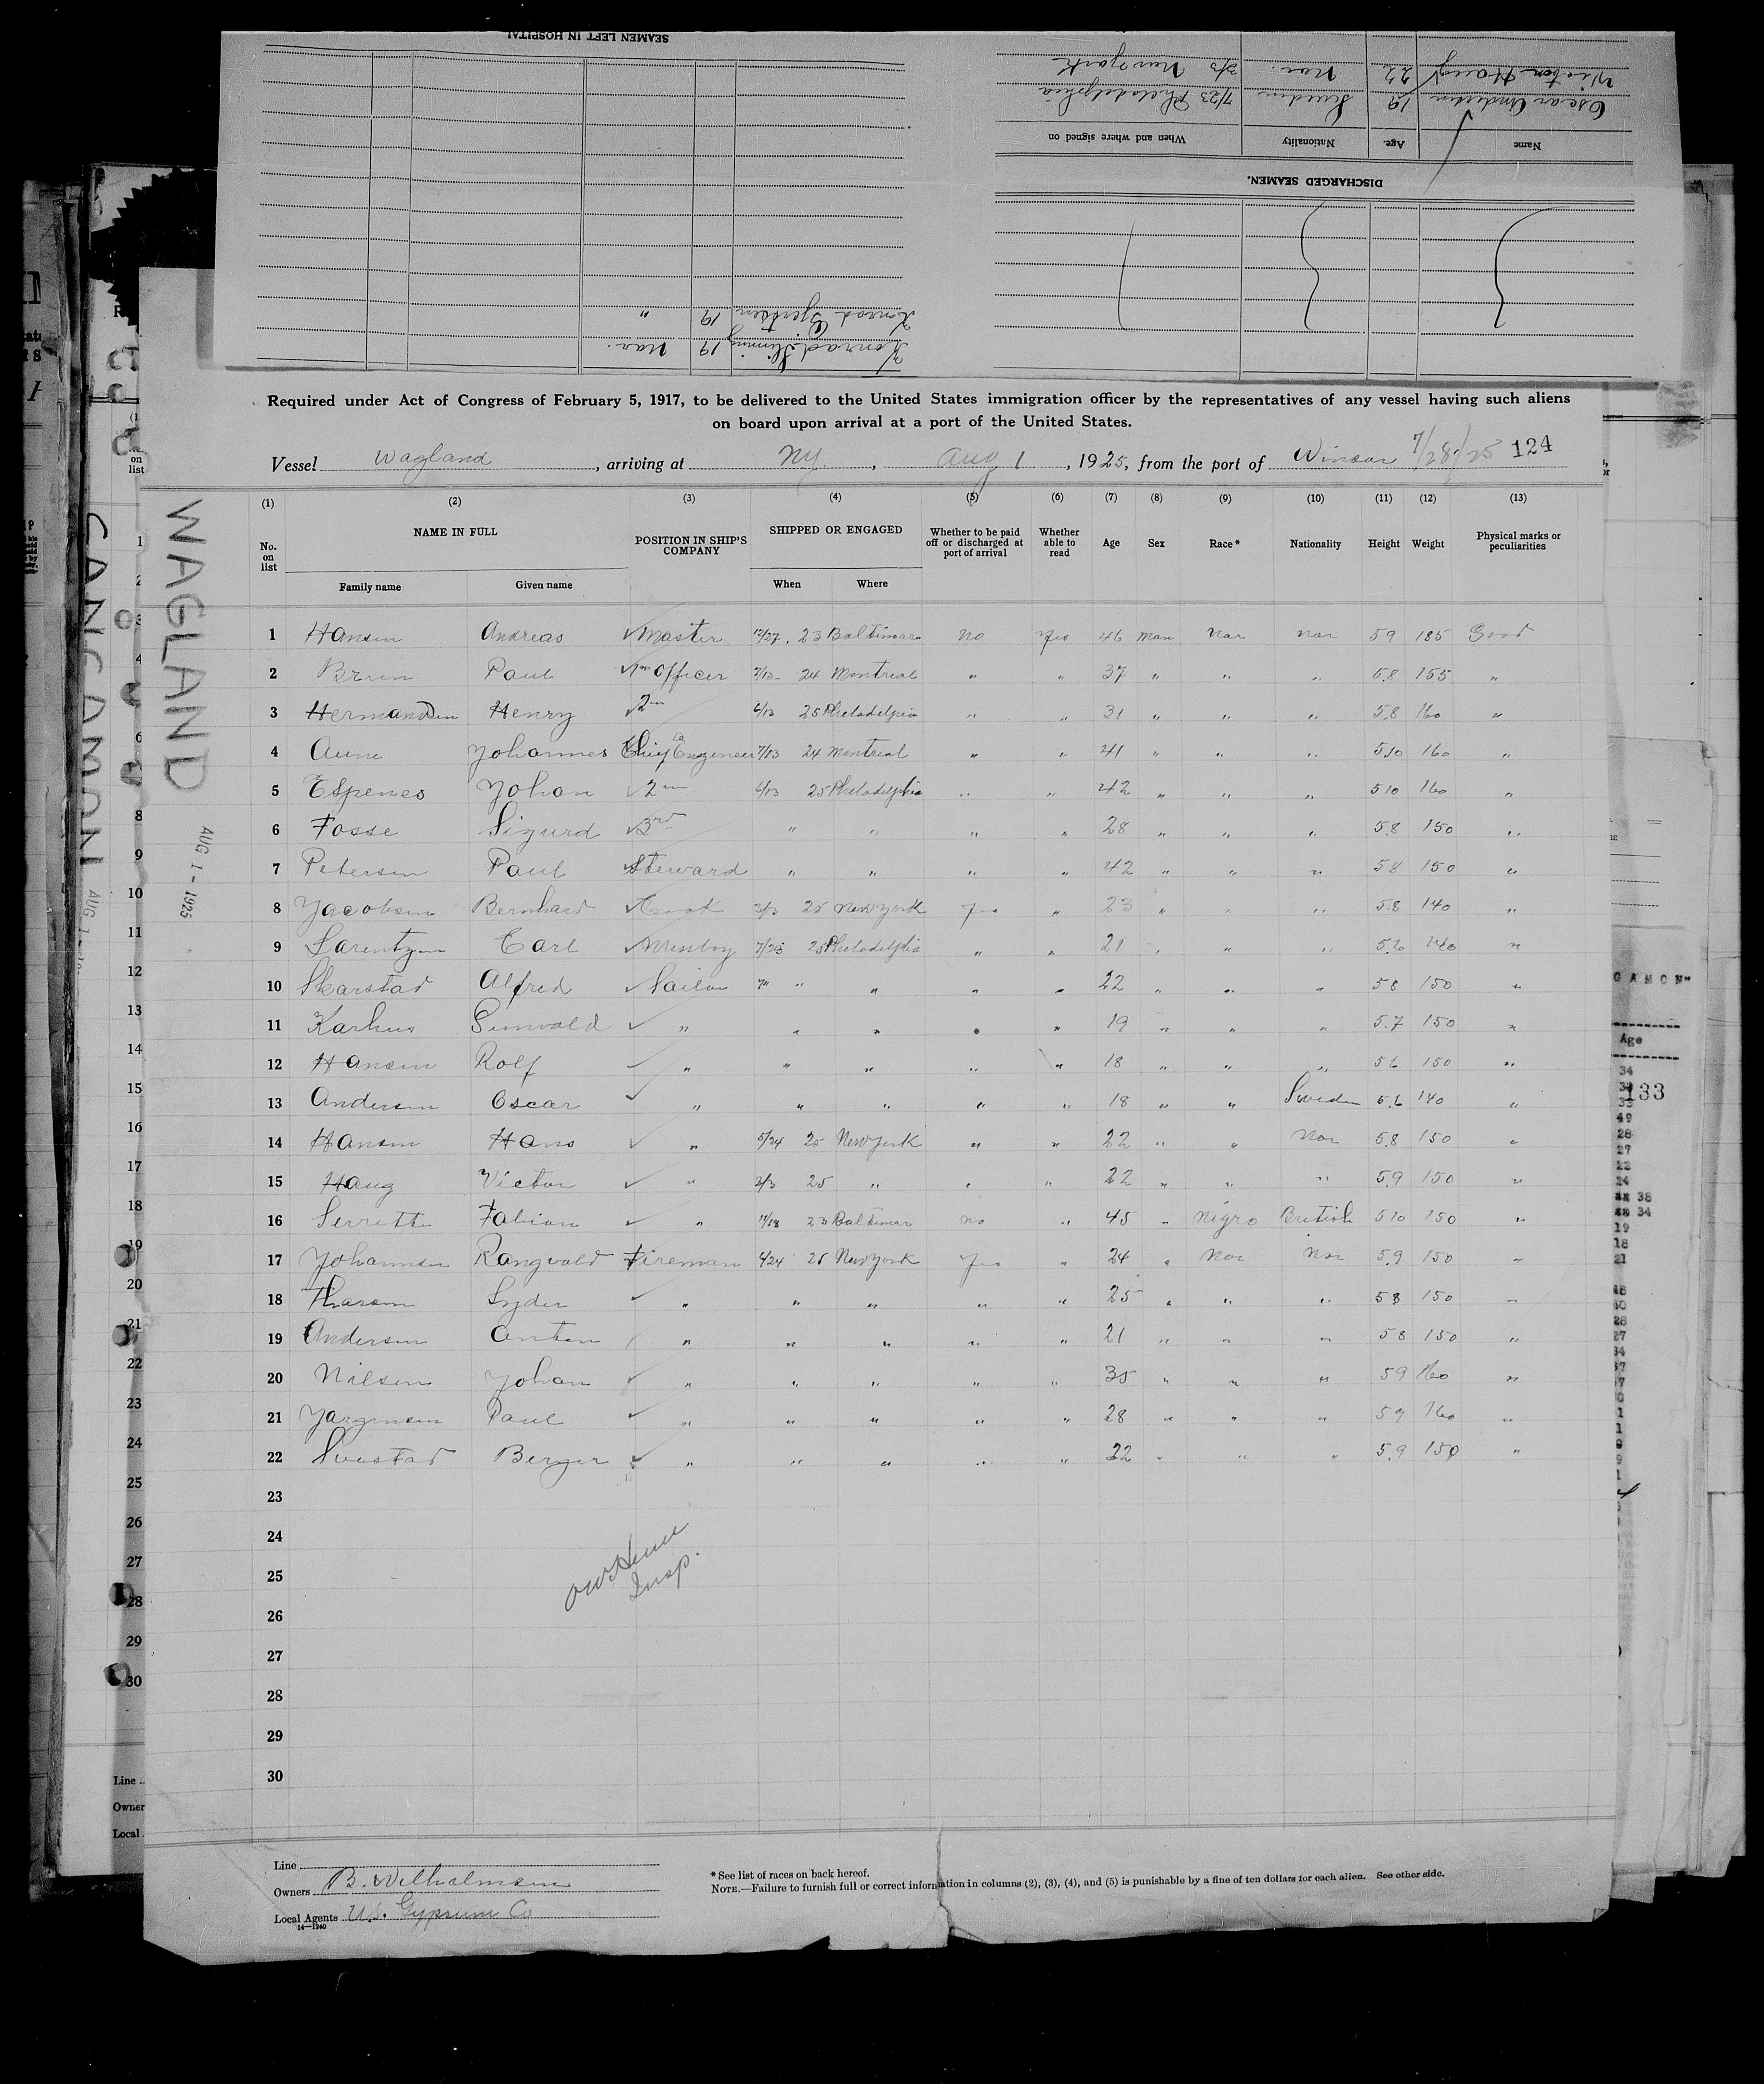 SEAMEN LEFT IN HOSPITAL
Konrad Gjertsen 19 "
Konrad 19 Nor.
Victor Haug 22 Nor. 3/3 New York
Oscar Andersen 19 Sweden 7/23 Philadelphia
Name Age. Nationality When and where signed on
DISCHARGED SEAMEN.
Required under Act of Congress of February 5, 1917, to be delivered to the United States immigration officer by the representatives of any vessel having such aliens
on board upon arrival at a port of the United States.
Vessel Wagland, arriving at NY, Aug 1, 1925, from the port of Winsor 7/28/25 124
(1) (2) (3) (4) (5) (6) (7) (8) (9) (10) (11) (12) (13)
No. on list NAME IN FULL POSITION IN SHIP'S COMPANY SHIPPED OR ENGAGED Whether to be paid off or discharged at port of arrival Whether able to read Age Sex Race* Nationality Height Weight Physical marks or peculiarities
Family name Given name When Where
1 Hansen Andreas Master 12/27. 23 Baltimore no Yes 46 man Nor Nor 59 185 Good
2 Brun Paul Officer 7/13- 24 Montreal " " 37 " " " 5.8 155 "
3 Hermandsen Henry 2nd 6/13 25 Philadelphia " " 31 " " " 5.8 160 "
4 Aune Johannes Chief Engeneer 7/13 24 Montreal " " 41 " " " 5.10 160 "
5 Espenes Johan 2nd 6/13 25 Philadelphia " " 42 " " " 510 160 "
6 Fosse Sigurd 3rd " " " " 28 " " " 5.8 150 "
7 Petersen Paul Steward " " " " 42 " " " 58 150 "
8 Jacobsen Bernhard Cook 3/3 25 New York Yes " 23 " " " 5.8 140 "
9 Larentzen Carl Messboy 7/23 25 Philadelphia " " 21 " " " 5.6 140 "
10 Skarstad Alfred Sailor " " " " " 22 " " " 58 150 "
11 Karhus Sunvald " " " " " 19 " " " 5.7 150 "
12 Hansen Rolf " " " " " 18 " " " 56 150 "
13 Andersen Oscar " " " " " 18 " " Sweden 5.6 140 "
14 Hansen Hans " 5/24 25 New York " " 22 " " Nor 5.8 150 "
15 Haug Victor " 3/3 25 " " " 22 " " " 5.9 150 "
16 Serrette Fabian " 11/18 23 Baltimor no " 45 " Nigro British 510 150 "
17 Johannsen Rangvald Fireman 4/24 25 New York Yes " 24 " Nor Nor 5.9 150 "
18 Tharsen Lyder " " " " " 25 " " " 58 150 "
19 Andersen Anton " " " " " 21 " " " 58 150 "
20 Nilsen Johan " " " " " 35 " " " 59 160 "
21 Jargensen Paul " " " " " 28 " " " 59 160 "
22 Svestad Berger " " " " " 22 " " " 5.9 150 "
23
24
25
26
27
28
29
30
Insp.
WAGLAND
AUG 1 - 1925
SANGAMON
AUG 1
133
Age
Line
Owners B. Wilhelmsen
Local Agents U.S. Gypsum Co
14—1240
* See list of races on back hereof.
NOTE.—Failure to furnish full or correct information in columns (2), (3), (4), and (5) is punishable by a fine of ten dollars for each alien. See other side.